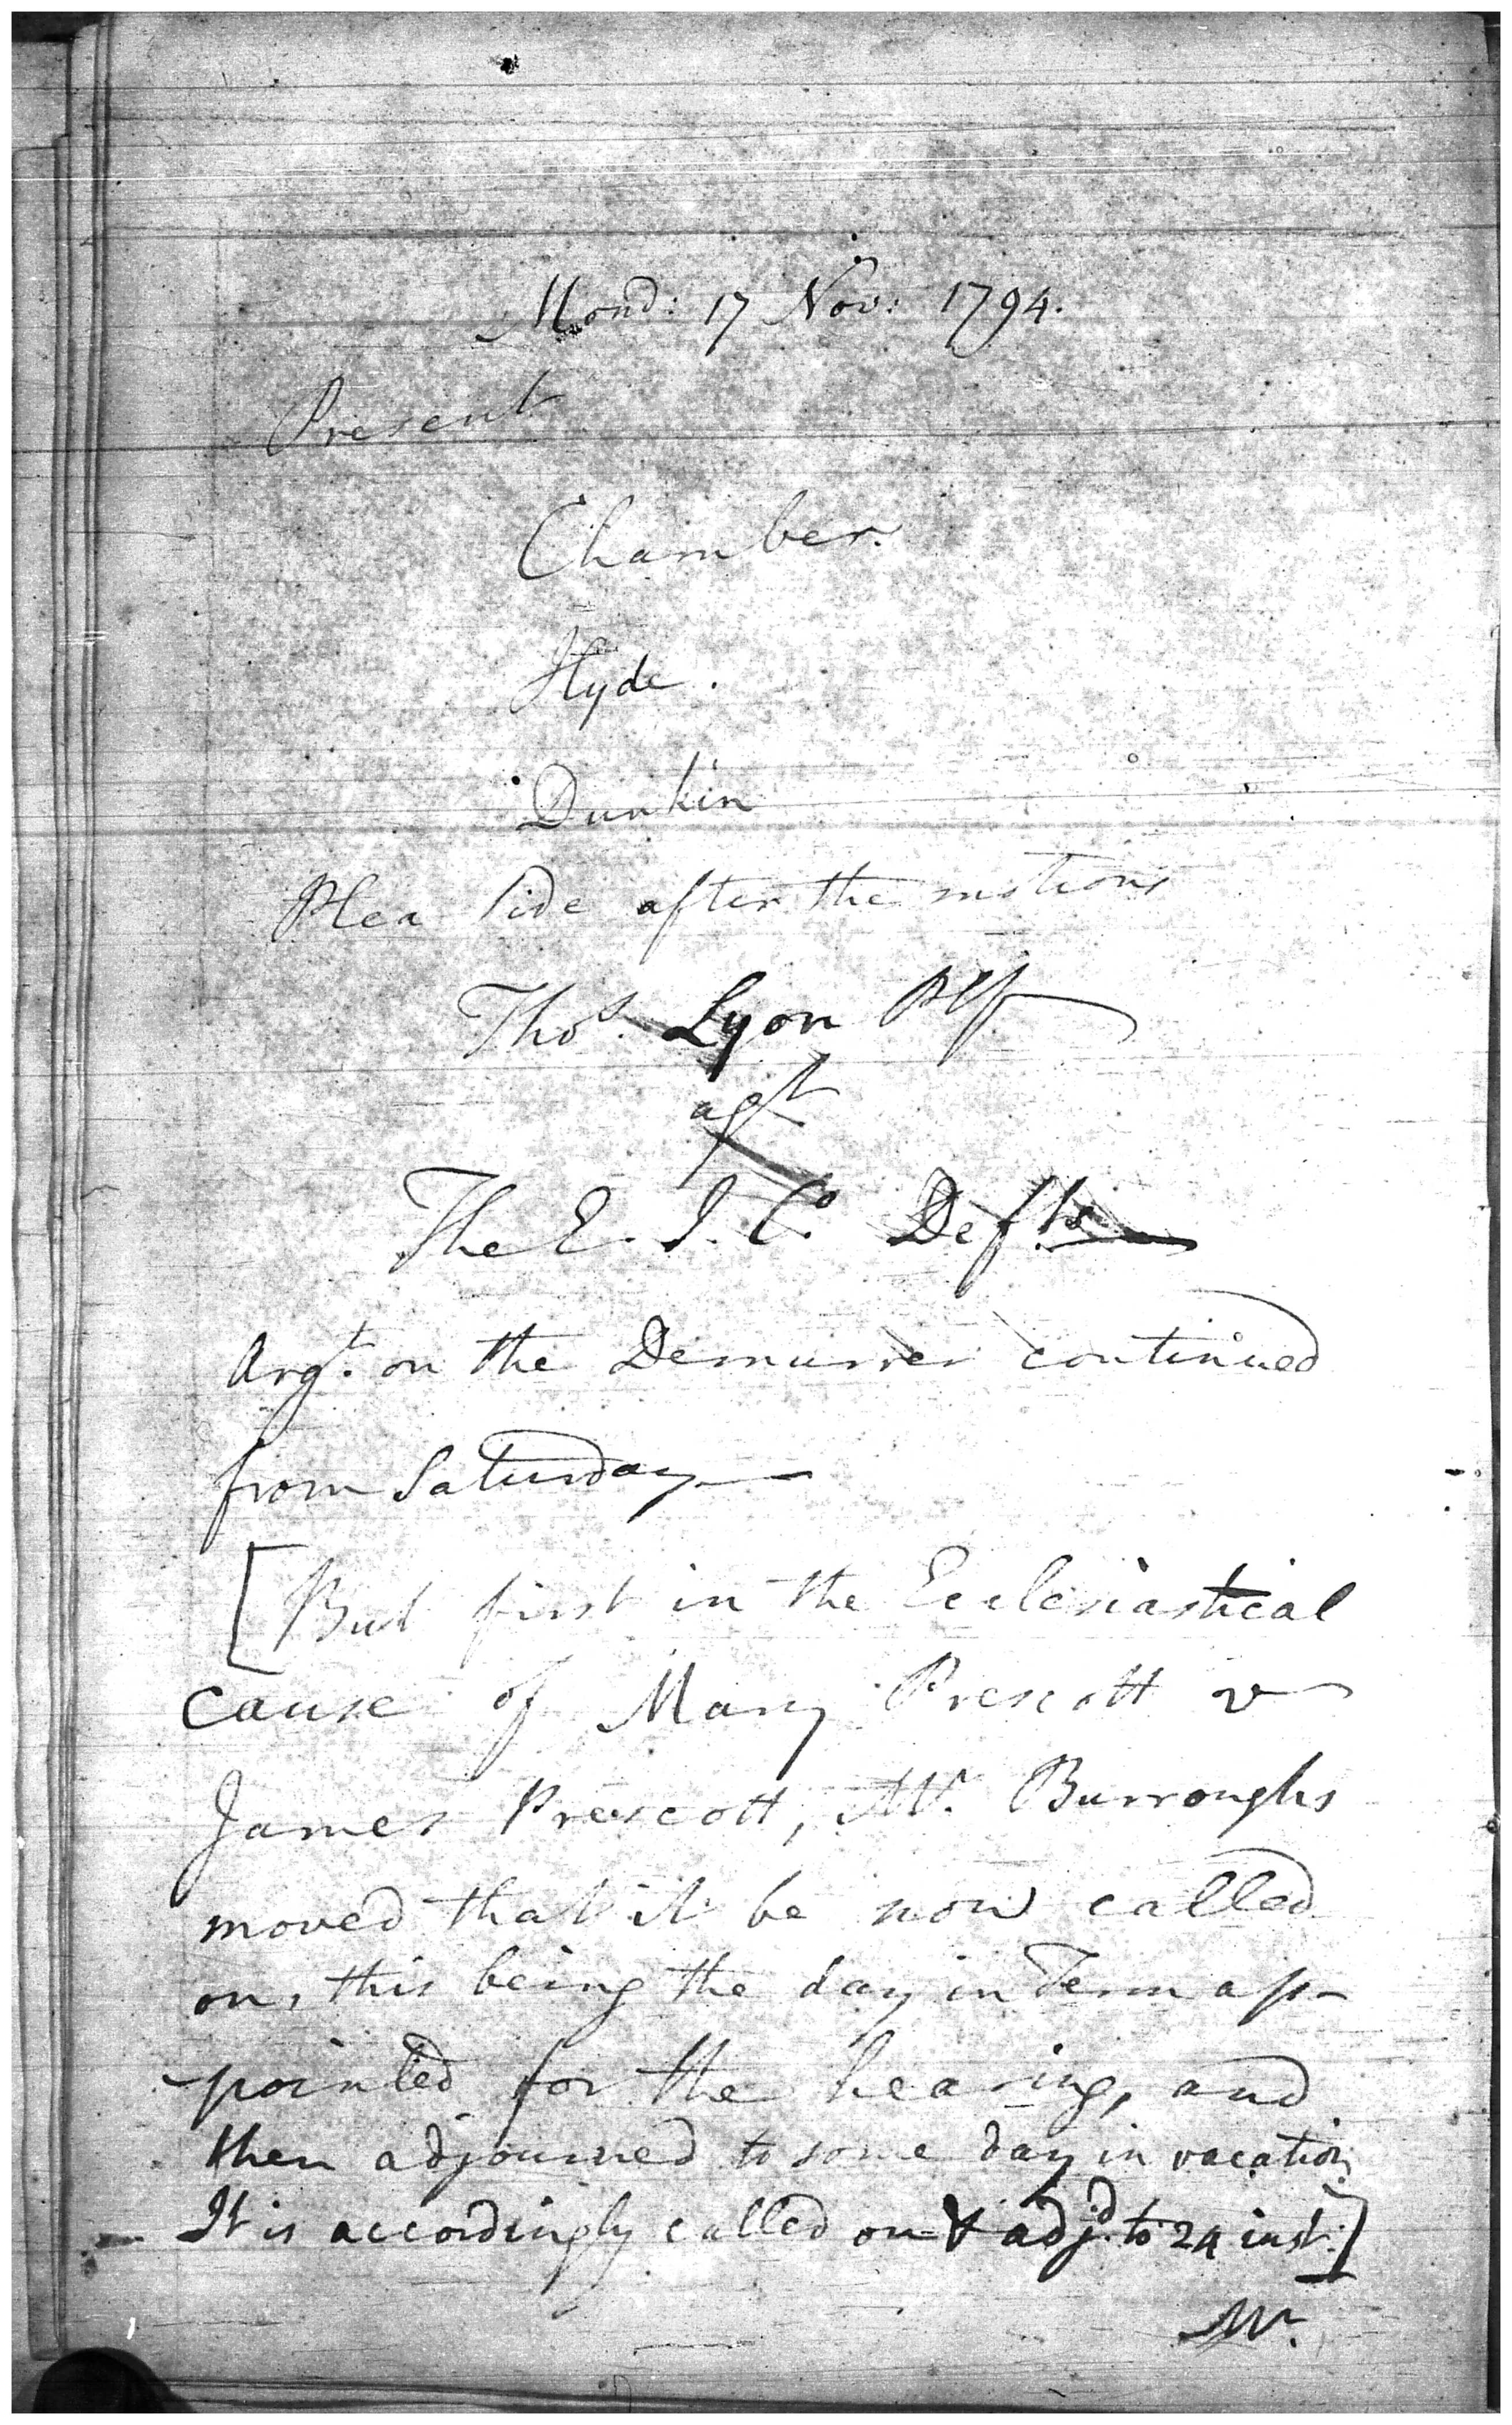 Mond: 17 Nov: 1794.
Present
Chamber.
Hyde.
Dunkin
Plea Side after the motions
Thos. Lyon Plf
agt
The E. I. Co. Defts.
Argt. on the Demurrer continued
from Saturday
[But first in the Ecclesiastical
cause of Mary Prescott v
James Prescott, Mr. Burroughs
moved that it be now called
on, this being the day in Term ap-
-pointed for the hearing, and
then adjourned to some day in vacation
It is accordingly called on & adjd. to 24 inst:]
Mr.